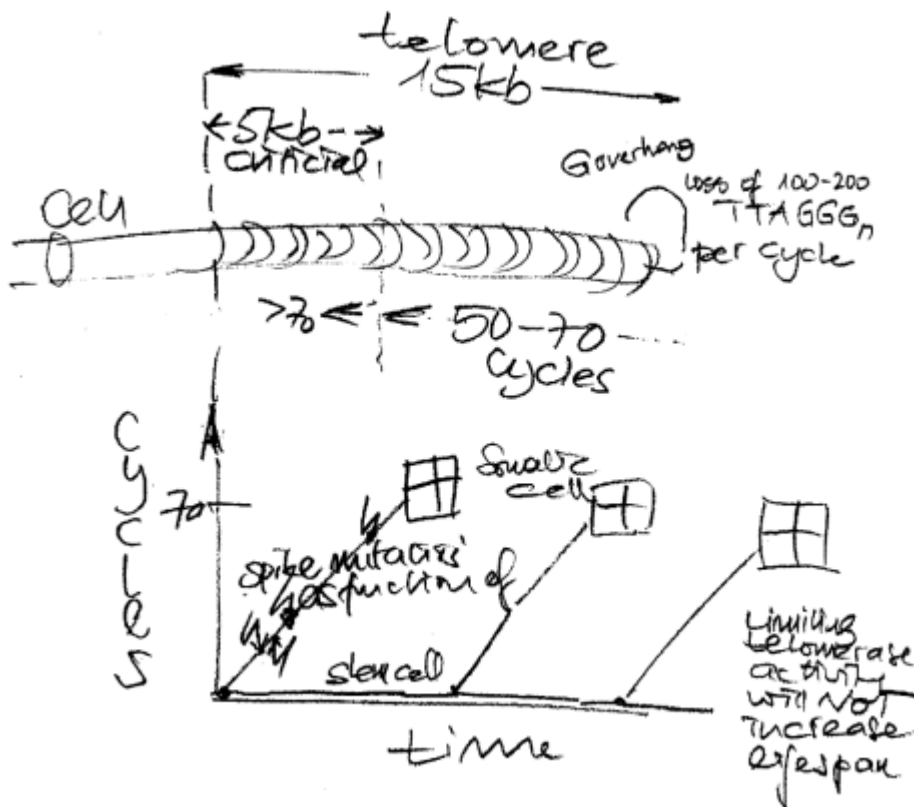 telomere
15kb
5kb
crincial
Goverhang
loss of 100-200
TTAGGGn
per cycle
Cell
>70
50-70
Cycles
Cycles
70
Somatic
cell
spike mutations
as function of
stem cell
time
Limiting
telomerase
activity
will Not
increase
lifespan